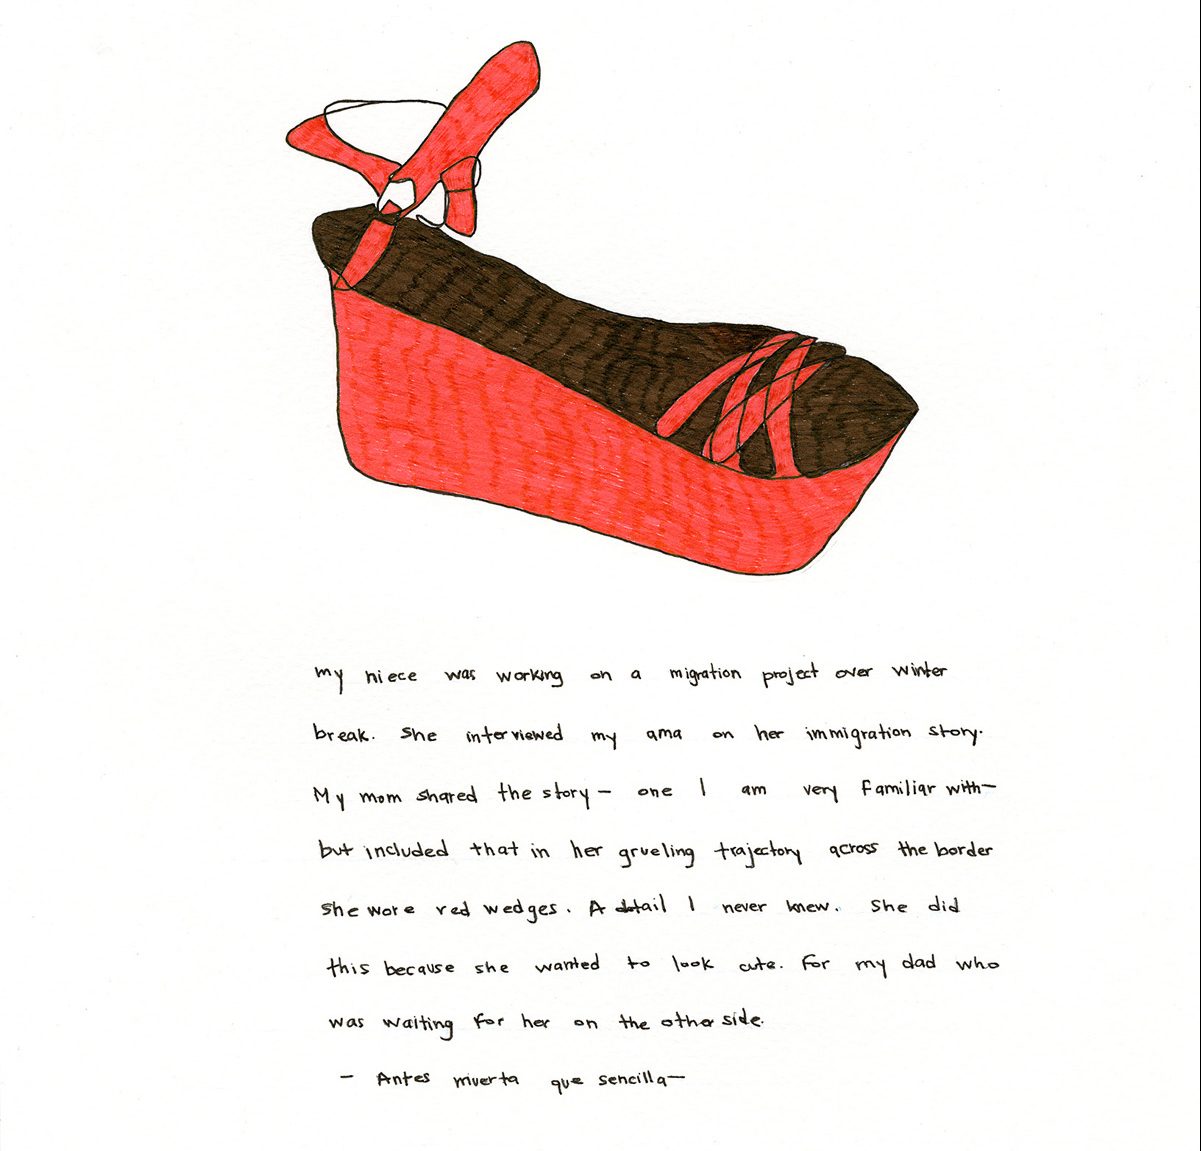 my niece was working on a migration project over winter
break. She interviewed my ama on her immigration story.
My mom shared the story — one I am very familiar with—
but included that in her grueling trajectory across the border
she wore red wedges. A detail I never knew. She did
this because she wanted to look cute. For my dad who
was waiting for her on the other side.
— Antes muerta que sencilla—